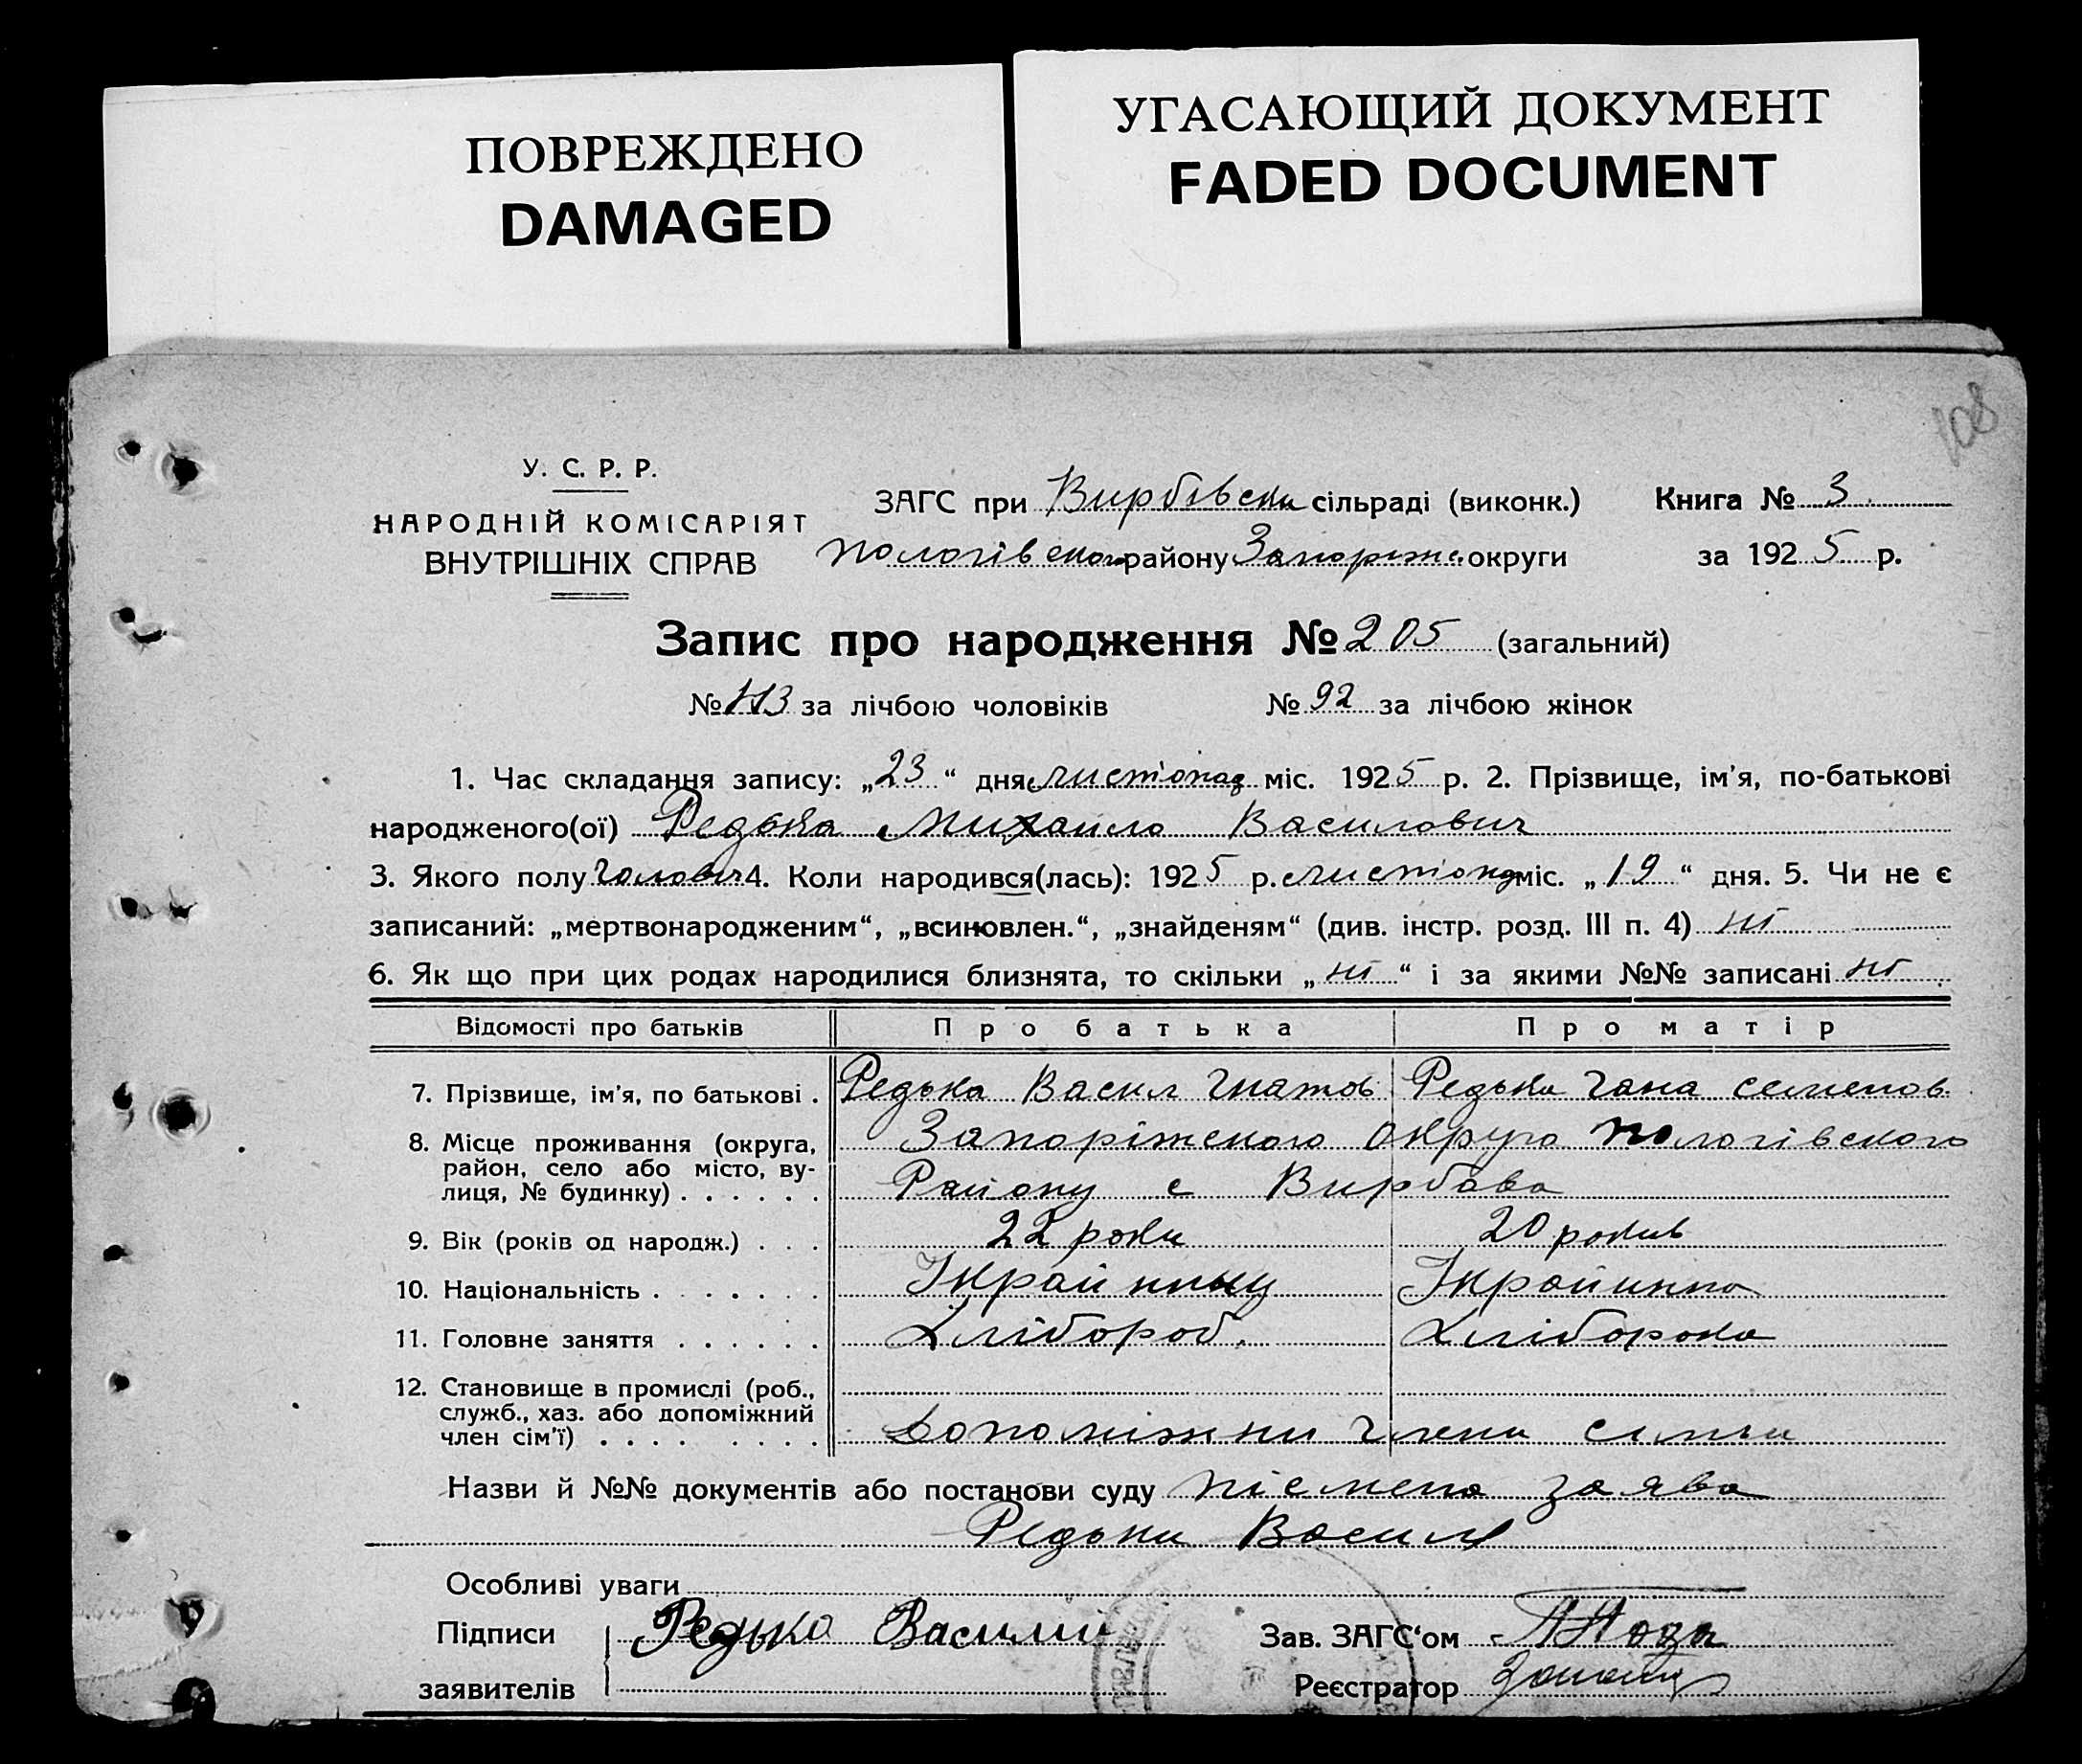 ПОВРЕЖДЕНО
DAMAGED
УГАСАЮЩИЙ ДОКУМЕНТ
FADED DOCUMENT
108
У. С. Р. Р.
НАРОДНІЙ КОМІСАРІЯТ
ВНУТРІШНІХ СПРАВ
ЗАГС при Вирбівски сільраді (виконк.)
Пологівского району Запоріж. округи
Книга № 3
за 1925 р.
Запис про народження № 205 (загальний)
№ 113 за лічбою чоловіків № 92 за лічбою жінок
1. Час складання запису: „23“ дня листопад міс. 1925 р. 2. Прізвище, ім’я, по-батькові
народженого(ої) Редька Михайло Василович
3. Якого полу Чоловіч 4. Коли народився(лась): 1925 р. листопад міс. „19“ дня. 5. Чи не є
записаний: „мертвонародженим“, „всиновлен.“, „знайденям“ (див. інстр. розд. III п. 4) ні
6. Як що при цих родах народилися близнята, то скільки „ні“ і за якими №№ записані ні
Відомості про батьків Про батька Про матір
7. Прізвище, ім’я, по батькові . Редька Васил Гнатов Редька Гана Семенов
8. Місце проживання (округа, Запоріжского Округа Пологівского
район, село або місто, ву-
лиця, № будинку) . . . . . . Району с Вирбова
9. Вік (років од народж.) . . . 22 роки 20 років
10. Національність . . . . . . . Украйинец Украйинка
11. Головне заняття . . . . . . Хлібороб. Хліборока
12. Становище в промислі (роб.,
служб., хаз. або допоміжний
член сім’ї) . . . . . . . . Допоміжни члени симьи
Назви й №№ документів або постанови суду пісмена заява
Редьки Васил
Особливі уваги
Підписи Редько Василий Зав. ЗАГС‘ом
заявителів Реєстратор